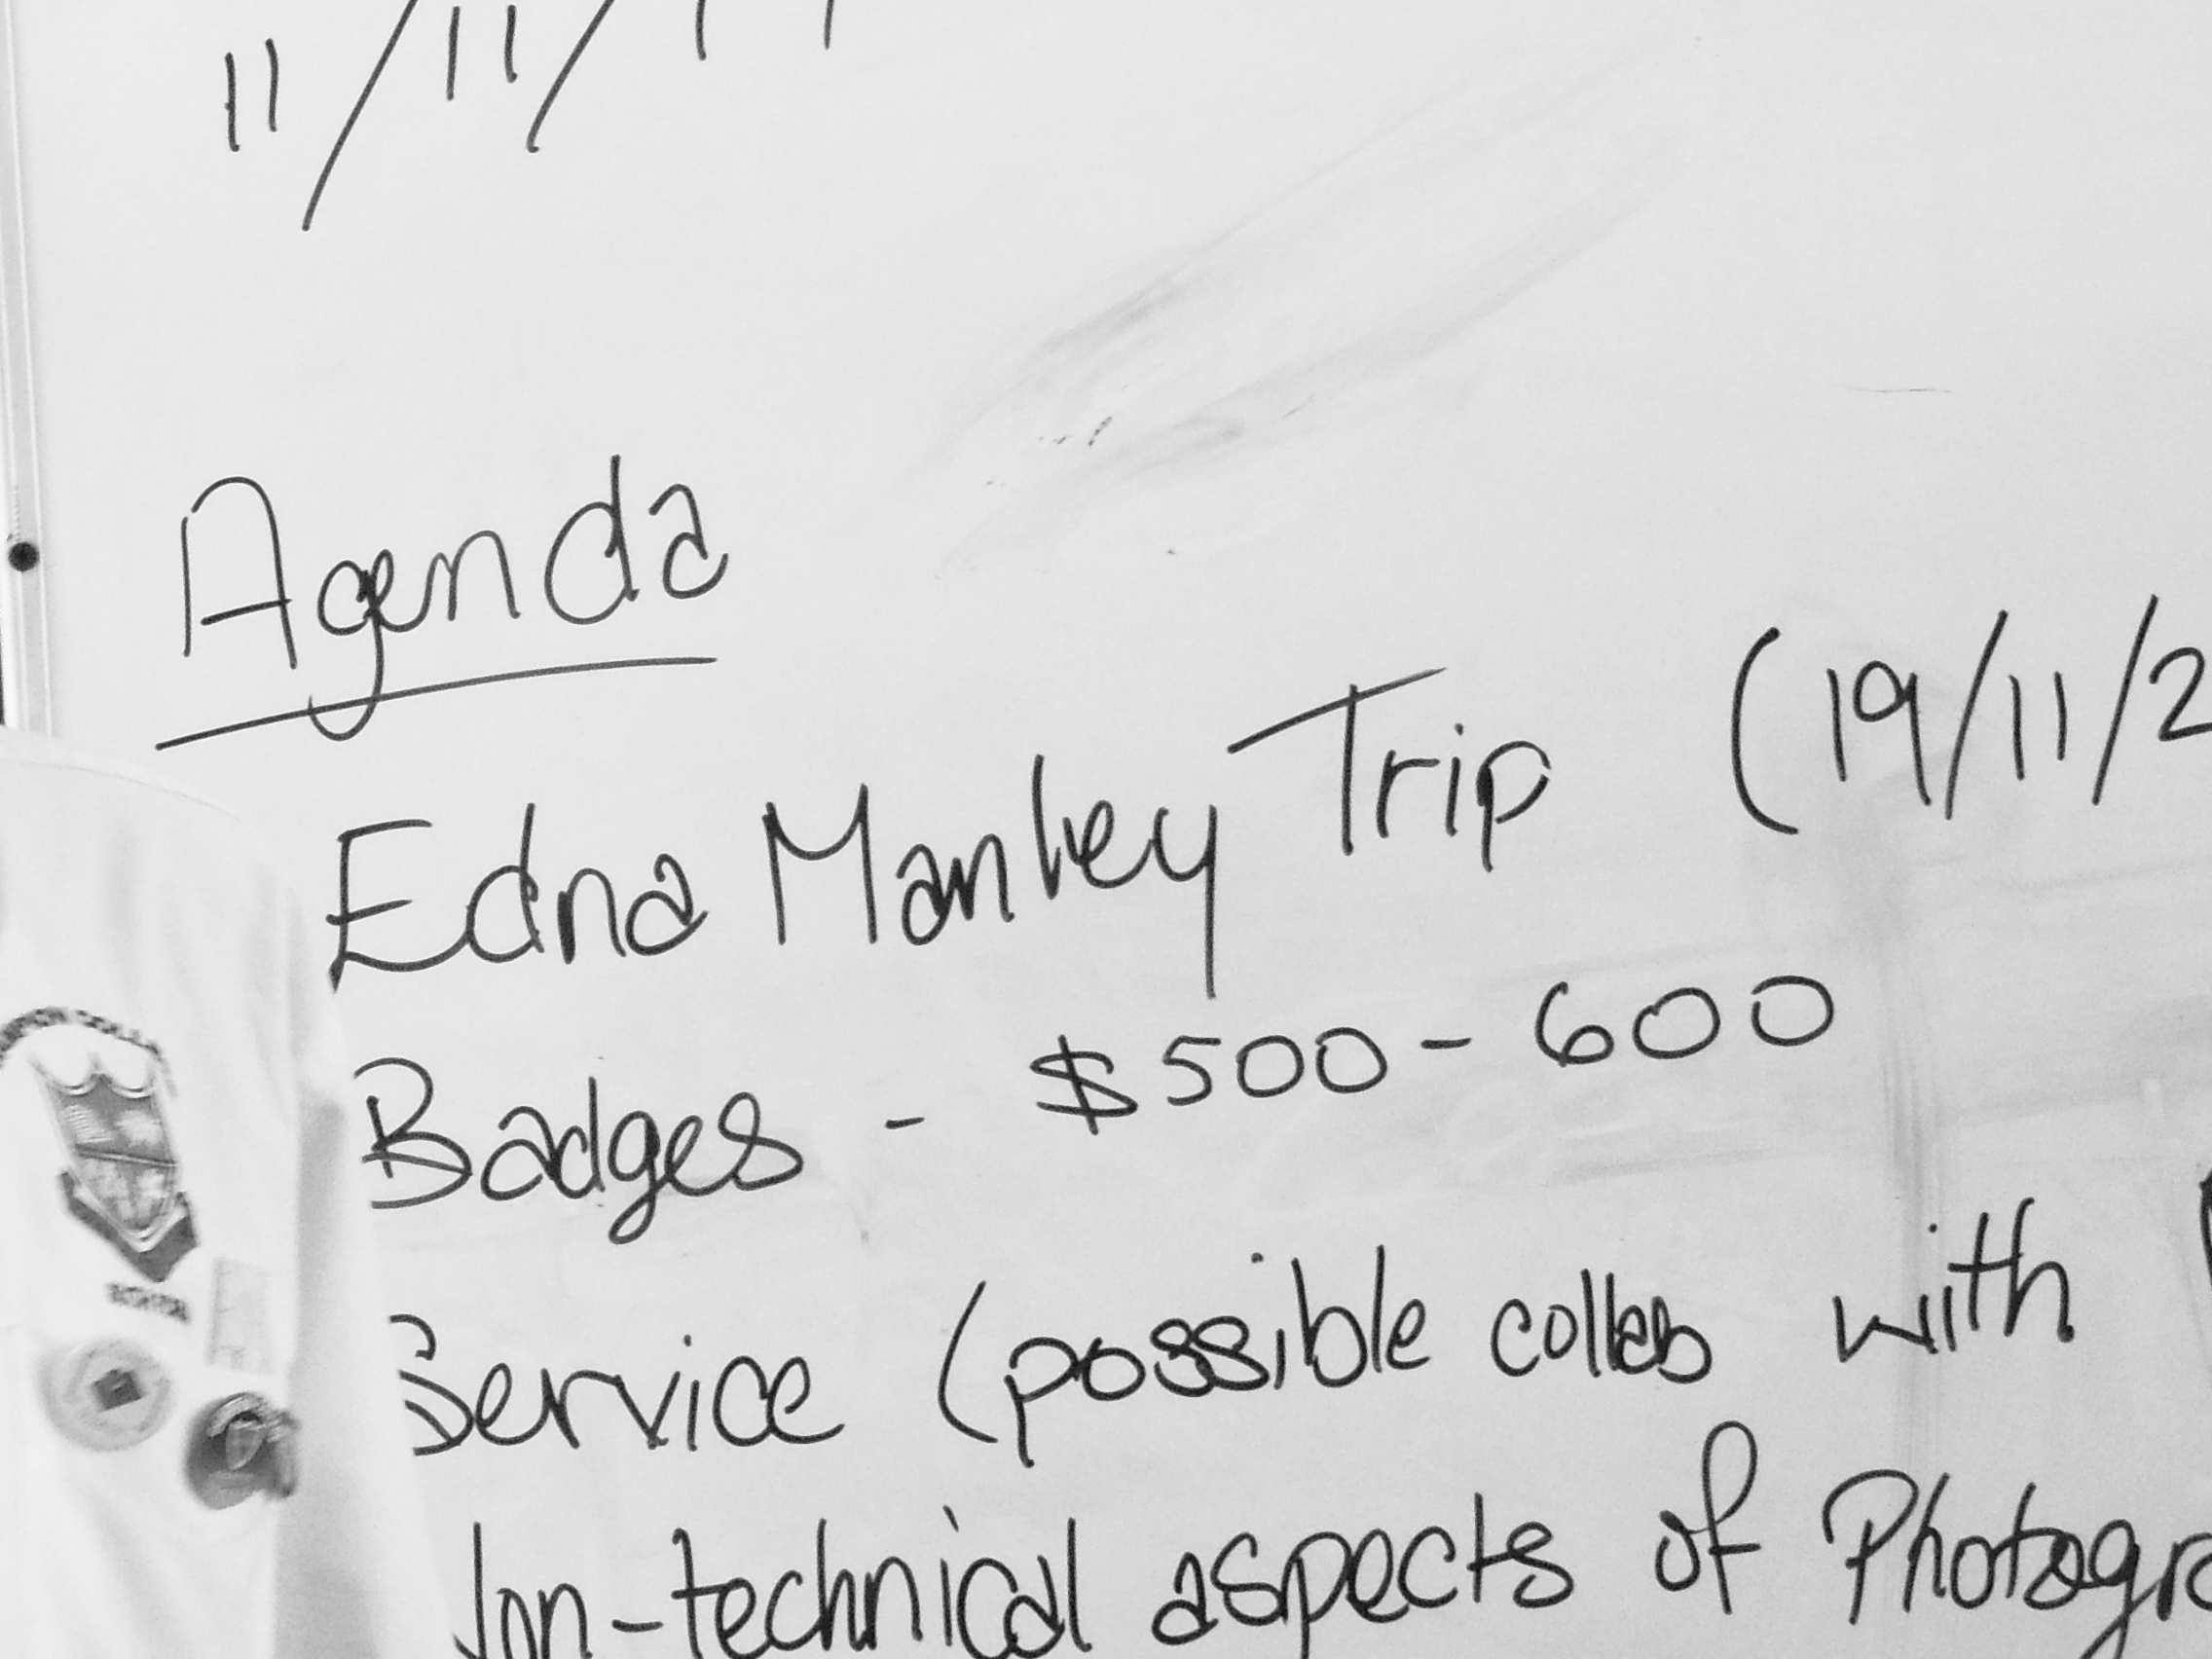 11/11/
Agenda
Edna Manley Trip (19/11/2
Badges - $500-600
Service (possible collab with
Non-technical aspects of Photogra